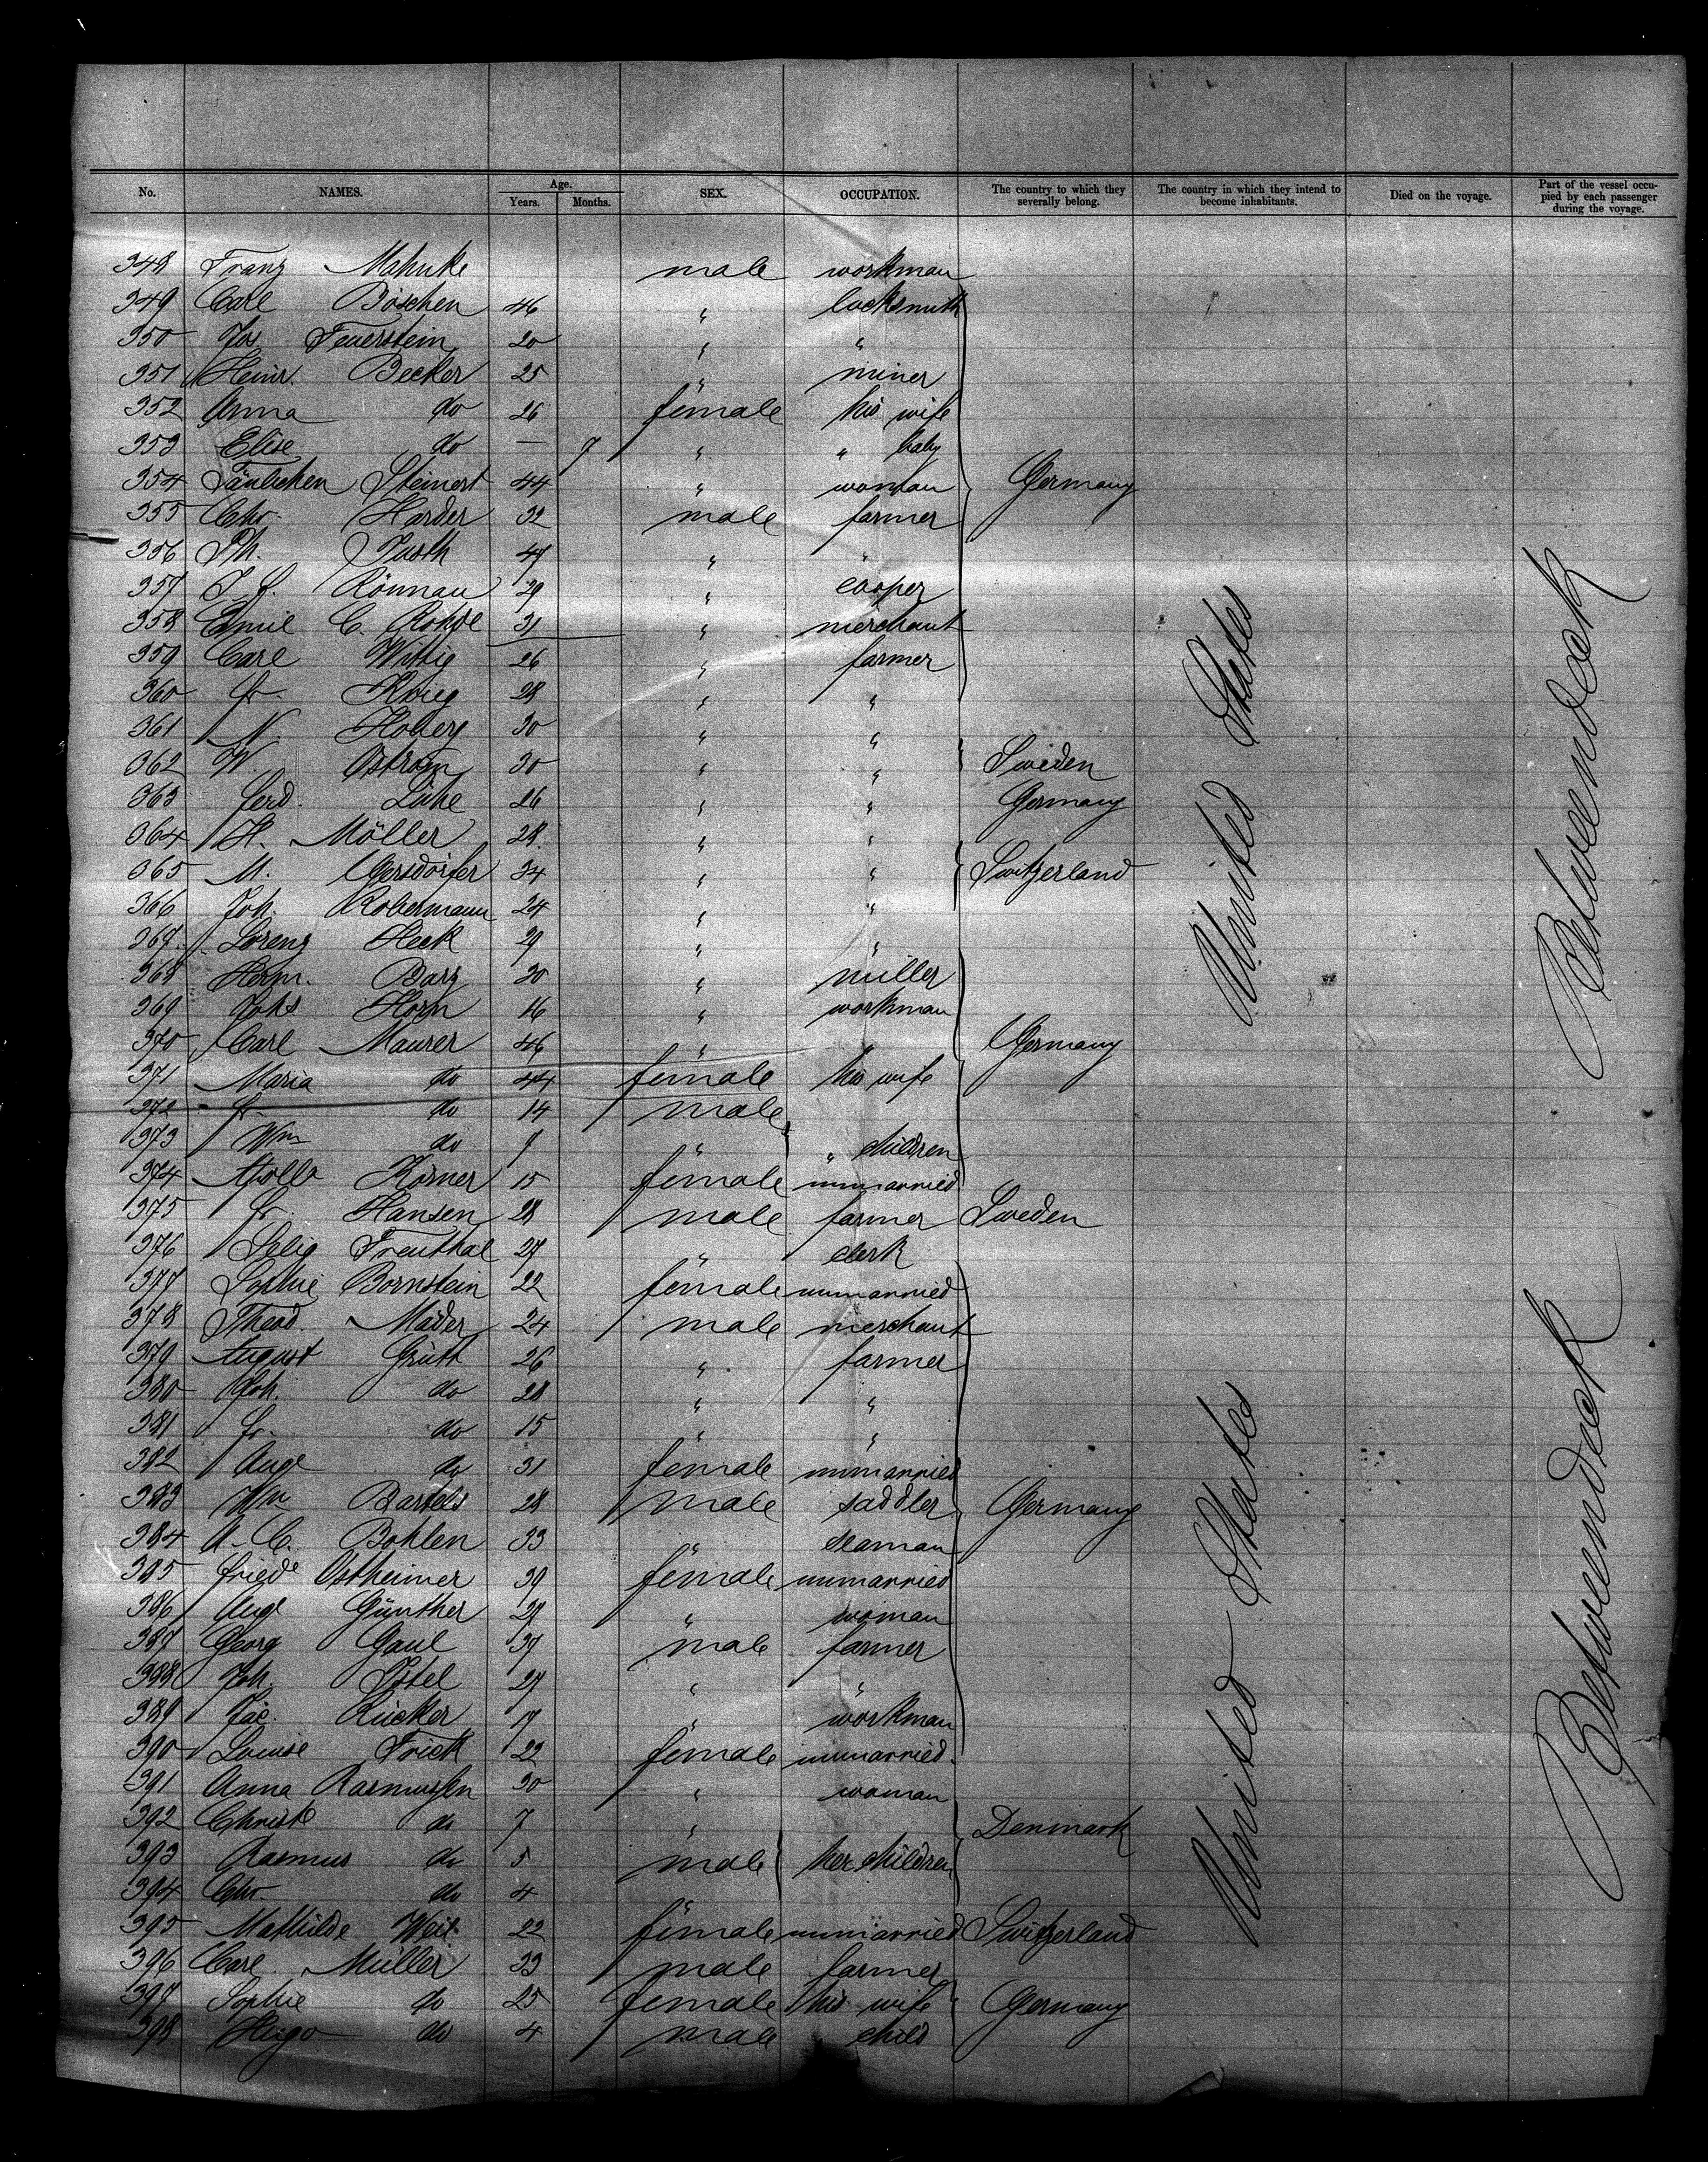 No. NAMES. Age. Years. Months. SEX. OCCUPATION. The country to which they severally belong. The country in which they intend to become inhabitants. Died on the voyage. Part of the vessel occupied by each passenger during the voyage.
348 Franz Mahnke male workman
349 Carl Böschen 46 " locksmith
350 Jos Feuerstein 20 " "
351 Heinr. Becker 25 " miner
352 Anna do 26 female his wife
353 Elise do — 7 " " baby
354 Steinert 44 " woman Germany
355 Chr. Harder 32 male farmer
356 Ph. Justh 47 " "
357 Rönnau 29 " cooper
358 Emil C. Rohde 31 " merchant
359 Carl Wittig 26 " farmer
360 fr. Krieg 28 " "
361 N. Hoberg 30 " "
362 W. Ostrom 30 " " Sweden
363 ferd. Lühe 26 " " Germany
364 H. Möller 28 " "
365 M. 34 " " Switzerland
366 Joh. Kobermann 24 " "
367 Lorenz Heck 29 " "
368 Herm. Barz 30 " miller
369 Johs Horn 16 " workman
370 Carl Maurer 46 " Germany
371 Maria do 44 female his wife
372 fr. do 14 male
373 Wm do " " children
374 Körner 15 female unmarried
375 fr. Hansen 28 male farmer Sweden
376 Selig Freuthal 27 " clerk
377 Sophie Bornstein 22 female unmarried
378 Theod. Mäder 24 male merchant
379 August Grütt 26 " farmer
380 Joh. do 28 " "
381 fr. do 15 " "
382 Auge do 31 female unmarried
383 Wm Bartels 28 male saddler Germany
384 A. C. Bohlen 33 " seaman
385 friede Ostheimer 39 female unmarried
386 Auge Günther 29 " woman
387 Georg Gaul 37 male farmer
388 Joh. Istel 27 " "
389 Jac. Rücker 17 " workman
390 Louise Frick 22 female unmarried
391 Anna Rasmussen 30 " woman
392 Christe do 7 " Denmark
393 Rasmus do 5 male her children
394 Chr do 4
395 Mathilde Weil 22 female unmarried Switzerland
396 Carl Müller 33 male farmer
397 Sophie do 25 female his wife Germany
398 Hugo do 4 male child
United States
United States
Betweendeck
Betweendeck